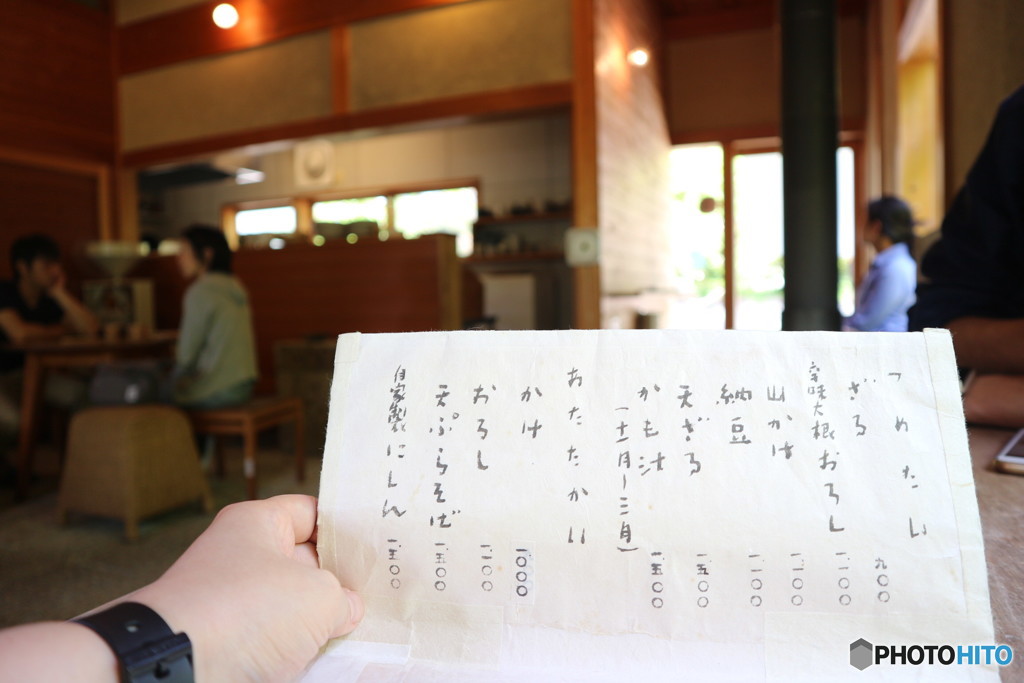 つめたい
ざる 九〇〇
辛味大根おろし 一、一〇〇
山かけ 一、一〇〇
納豆 一、一〇〇
天ざる 一、五〇〇
かも汁 一、五〇〇
(十一月〜三月)
あたたかい
かけ 一、〇〇〇
おろし 一、一〇〇
天ぷらそば 一、五〇〇
自家製にしん 一、五〇〇
PHOTOHITO